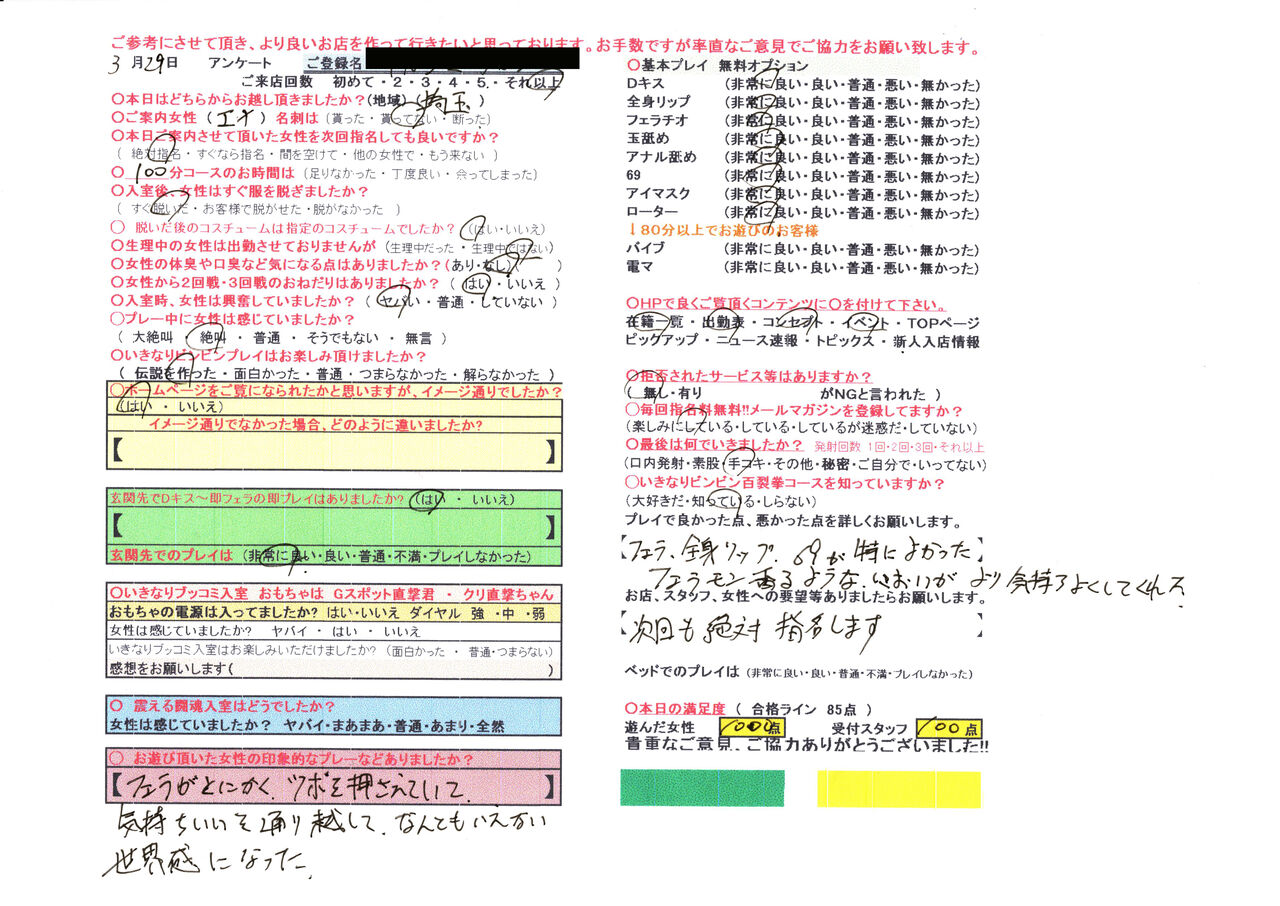 ご参考にさせて頂き、より良いお店を作って行きたいと思っております。お手数ですが率直なご意見でご協力をお願い致します。
3月29日 アンケート ご登録名
ご来店回数 初めて・2・3・4・5・それ以上
〇本日はどちらからお越し頂きましたか?(地域)(埼玉)
〇ご案内女性(エナ)名刺は(貰った・貰ってない・断った)
〇本日ご案内させて頂いた女性を次回指名しても良いですか?
(絶対指名・すぐなら指名・間を空けて・他の女性で・もう来ない)
〇 100分コースのお時間は(足りなかった・丁度良い・余ってしまった)
〇入室後、女性はすぐ服を脱ぎましたか?
(すぐ脱いだ・お客様で脱がせた・脱がなかった)
〇 脱いだ後のコスチュームは指定のコスチュームでしたか?(はい・いいえ)
〇生理中の女性は出勤させておりませんが(生理中だった・生理中ではない)
〇女性の体臭や口臭など気になる点はありましたか?(あり・なし)( )
〇女性から2回戦・3回戦のおねだりはありましたか?(はい・いいえ)
〇入室時、女性は興奮していましたか?(ヤバい・普通・していない)
〇プレー中に女性は感じていましたか?
(大絶叫・絶叫・普通・そうでもない・無言)
〇いきなりビンビンプレイはお楽しみ頂けましたか?
(伝説を作った・面白かった・普通・つまらなかった・解らなかった)
〇ホームページをご覧になられたかと思いますが、イメージ通りでしたか?
(はい・いいえ)
イメージ通りでなかった場合、どのように違いましたか?
【 】
玄関先でDキス〜即フェラの即プレイはありましたか?(はい・いいえ)
【 】
玄関先でのプレイは(非常に良い・良い・普通・不満・プレイしなかった)
〇いきなりブッコミ入室 おもちゃは Gスポット直撃君 ・ クリ直撃ちゃん
おもちゃの電源は入ってましたか? はい・いいえ ダイヤル 強・中・弱
女性は感じていましたか? ヤバイ・はい・いいえ
いきなりブッコミ入室はお楽しみいただけましたか?(面白かった・普通・つまらない)
感想をお願いします( )
〇 震える闘魂入室はどうでしたか?
女性は感じていましたか? ヤバイ・まあまあ・普通・あまり・全然
〇 お遊び頂いた女性の印象的なプレーなどありましたか?
【フェラがとにかく、ツボを押さえていて、】
気持ちいいを通り越して、なんともいえない
世界感になった。
〇基本プレイ 無料オプション
Dキス (非常に良い・良い・普通・悪い・無かった)
全身リップ (非常に良い・良い・普通・悪い・無かった)
フェラチオ (非常に良い・良い・普通・悪い・無かった)
玉舐め (非常に良い・良い・普通・悪い・無かった)
アナル舐め (非常に良い・良い・普通・悪い・無かった)
69 (非常に良い・良い・普通・悪い・無かった)
アイマスク (非常に良い・良い・普通・悪い・無かった)
ローター (非常に良い・良い・普通・悪い・無かった)
↓80分以上でお遊びのお客様
バイブ (非常に良い・良い・普通・悪い・無かった)
電マ (非常に良い・良い・普通・悪い・無かった)
〇HPで良くご覧頂くコンテンツに〇を付けて下さい。
在籍一覧・出勤表・コンセプト・イベント・TOPページ
ピックアップ・ニュース速報・トピックス・新人入店情報
〇拒否されたサービス等はありますか?
(無し・有り がNGと言われた)
〇毎回指名料無料!!メールマガジンを登録してますか?
(楽しみにしている・している・しているが迷惑だ・していない)
〇最後は何でいきましたか? 発射回数 1回・2回・3回・それ以上
(口内発射・素股・手コキ・その他・秘密・ご自分で・いってない)
〇いきなりビンビン百裂拳コースを知っていますか?
(大好きだ・知っている・しらない)
プレイで良かった点、悪かった点を詳しくお願いします。
【フェラ、全身リップ、69が特によかった】
フェラモン香るような、においが より気持ちよくしてくれる
お店、スタッフ、女性への要望等ありましたらお願いします。
【次回も絶対指名します】
ベッドでのプレイは(非常に良い・良い・普通・不満・プレイしなかった)
〇本日の満足度(合格ライン 85点)
遊んだ女性 1000点 受付スタッフ 100点
貴重なご意見、ご協力ありがとうございました!!